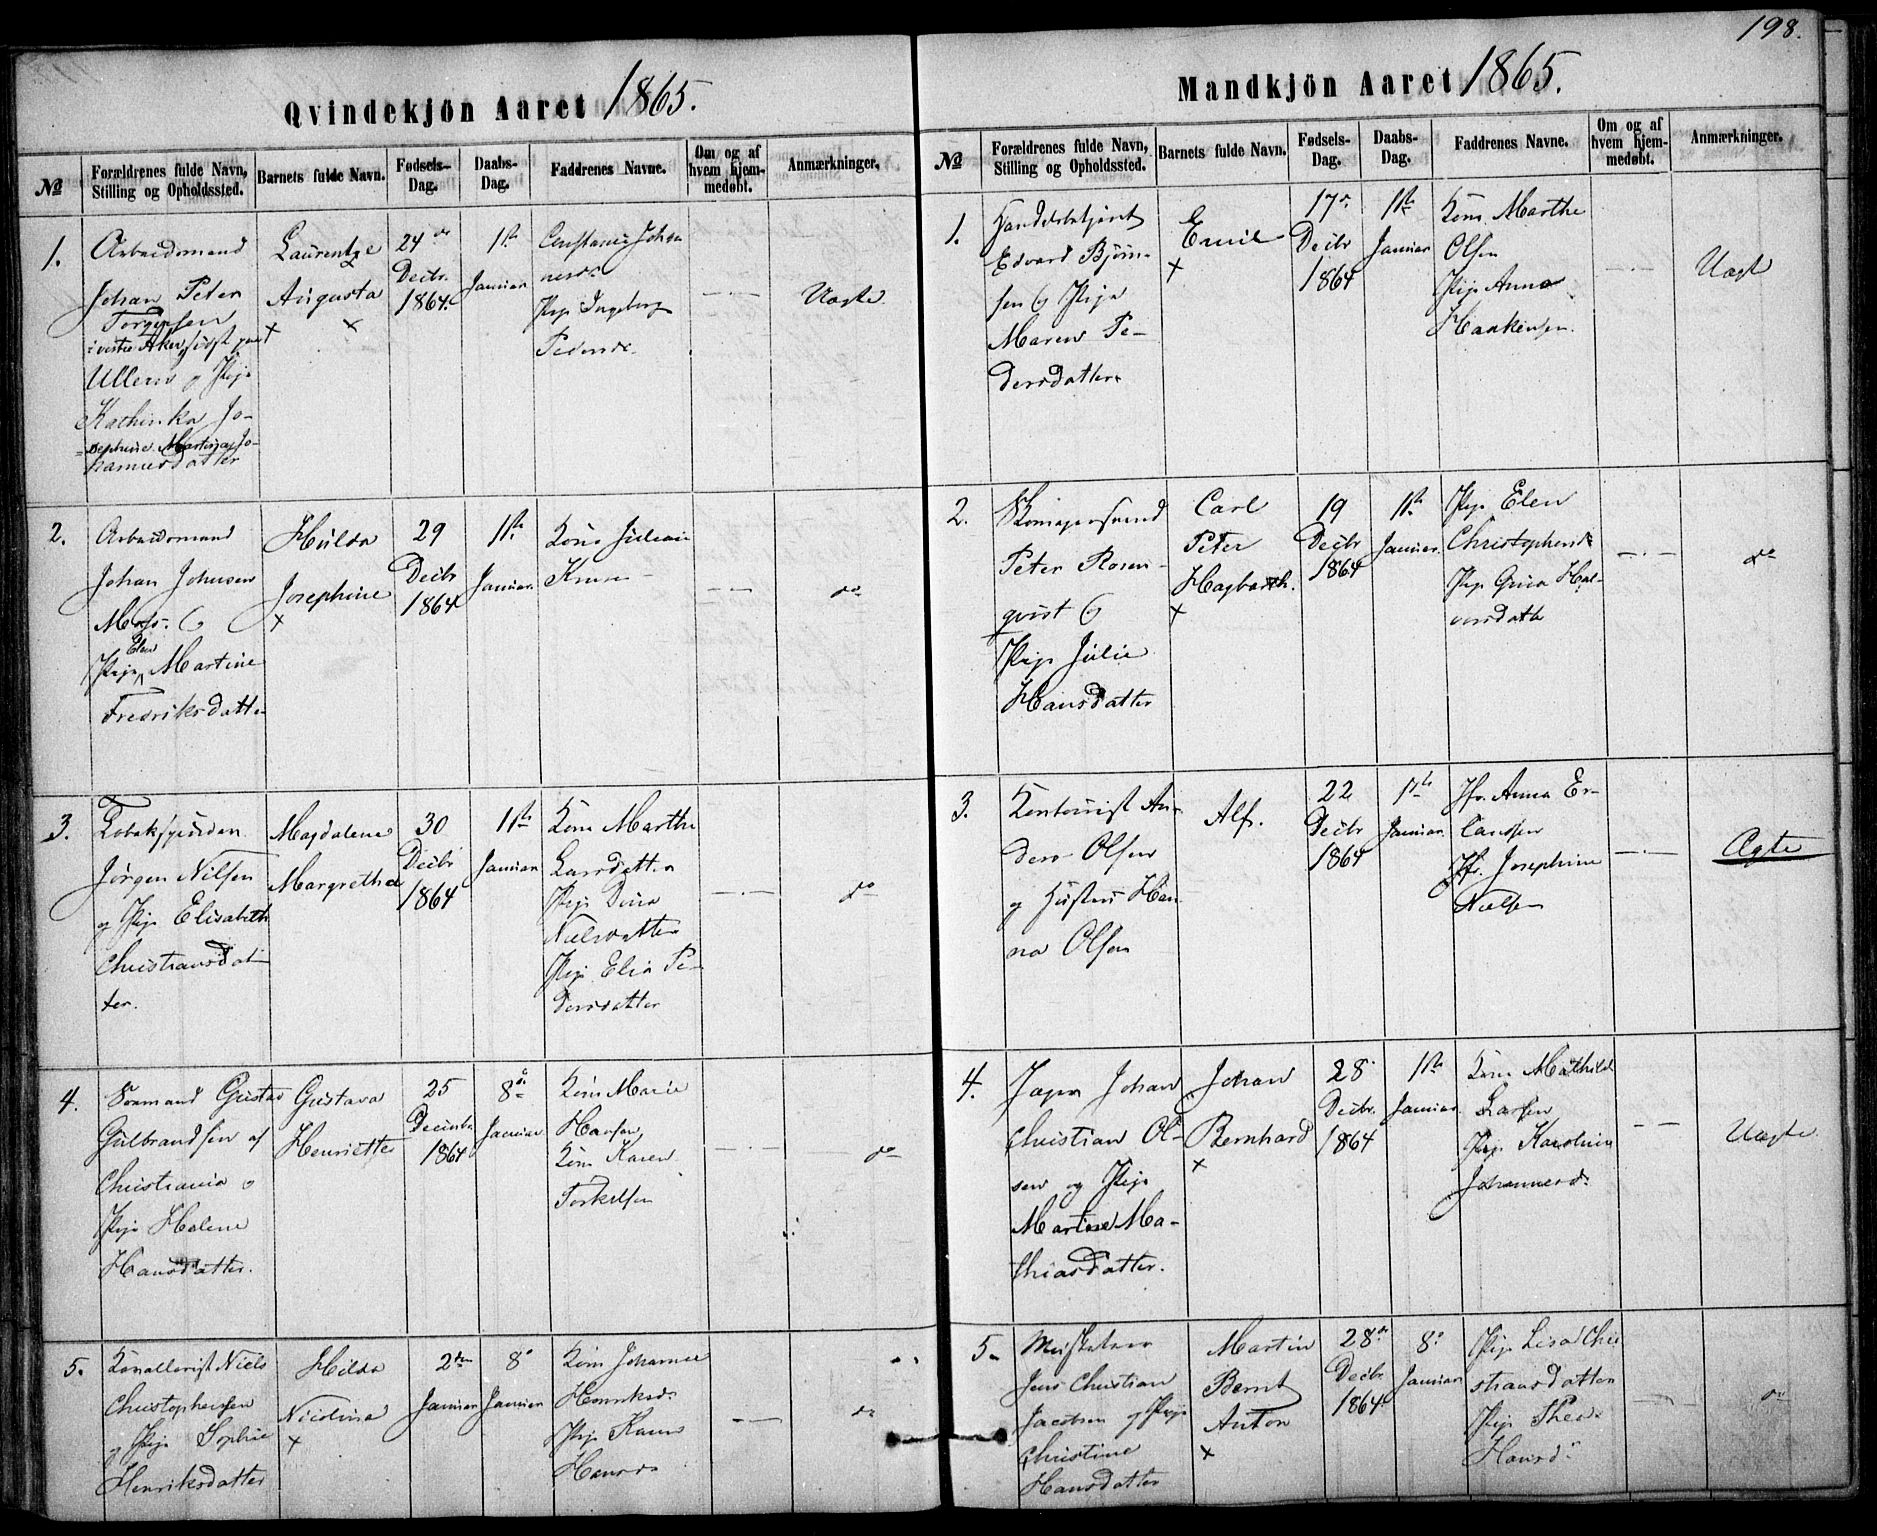 198.
Qvindekjön Aaret 1865.
№
Forældrenes fulde Navn, Stilling og Opholdssted.
Barnets fulde Navn.
Fødsels-Dag.
Daabs-Dag.
Faddrenes Navne.
Om og af hvem hjem-medøbt.
Anmærkninger.
1.
Arbeidsmand
Johan Peter
Torgersen
i vestre Aker, født paa
Ullern og Pige
Kathinka Jo-
sephine Martina Jo-
hannesdatter
Laurentze
Augusta
24de
Decbr.
1864.
1ste
Januar
Constance Johan
nesd.
Pige Ingeborg
Pedersd.
Uægte.
2.
Arbeidsmand
Johan Johnsen
Moss. &
Elen
Pige Martine
Fredriksdatter
Hulda
Josephine
29
Decbr
1864
1ste
Januar
Kone Juliane
do
3.
Tobaksspinder
Jørgen Nilsen
og Pige Elisabeth
Christiansdat-
ter.
Magdalena
Margrethe
30
Decbr
1864
1ste
Januar
Kone Marthe
Larsdatter
Pige Dina
Nielsdatter
Pige Elia Pe-
dersdatter
do
4.
Sømand Gustav
Gulbrandsen af
Christiania og
Pige Helene
Hansdatter.
Gustava
Henriette
25
Decembr
1864
8de
Januar
Kone Marie
Hansen
Kone Karen
Torkelsen
do
5.
Kavallerist Niels
Christophersen
og Pige Sophie
Henriksdatter
Hilda
Nicoline
2den
Januar
8de
Januar
Kone Johanne
Henriksd.
Pige Karen
Hansd.
do
Mandkjön Aaret 1865.
№
Forældrenes fulde Navn, Stilling og Opholdssted.
Barnets fulde Navn.
Fødsels-Dag.
Daabs-Dag.
Faddrenes Navne.
Om og af hvem hjem-medøbt.
Anmærkninger.
1.
Handelsbetjent
Edvard Bjørn-
sen & Pige
Maren Pe-
dersdatter
Emil
17de
Decbr
1864
1ste
Januar
Kone Marthe
Olsen
Pige Anna
Haakensen.
Uægte
2.
Skomagersvend
Peter Rosen-
qvist &
Pige Julie
Hansdatter
Carl
Peter
Hagbarth.
19
Decbr
1864
1ste
Januar.
Pige Elen
Christophersd
Pige Grina Hal-
vorsdatter
do
3.
Kontorist An-
ders Olsen
og Hustru Han
na Olsen
Alf.
22
Decbr
1864
1ste
Januar.
Jfr. Anna Er-
landsen
Jfr. Josephine
Nielsen
Ægte
4.
Jæger Johan
Christian Ol-
sen og Pige
Martine Ma-
thiasdatter.
Johan
Bernhard
28
Decbr.
1864
1ste
Januar
Kone Mathilde
Larsen
Pige Karoline
Johannesd.
Uægte
5.
Musketeer
Jens Christian
Jacobsen og Pige
Christine
Hansdatter
Martin
Bernt
Anton
28de
Decbr
1864
8de
Januar
Pige Lisa Chri
stiansdatter
Pige Thea
Hansd.
do